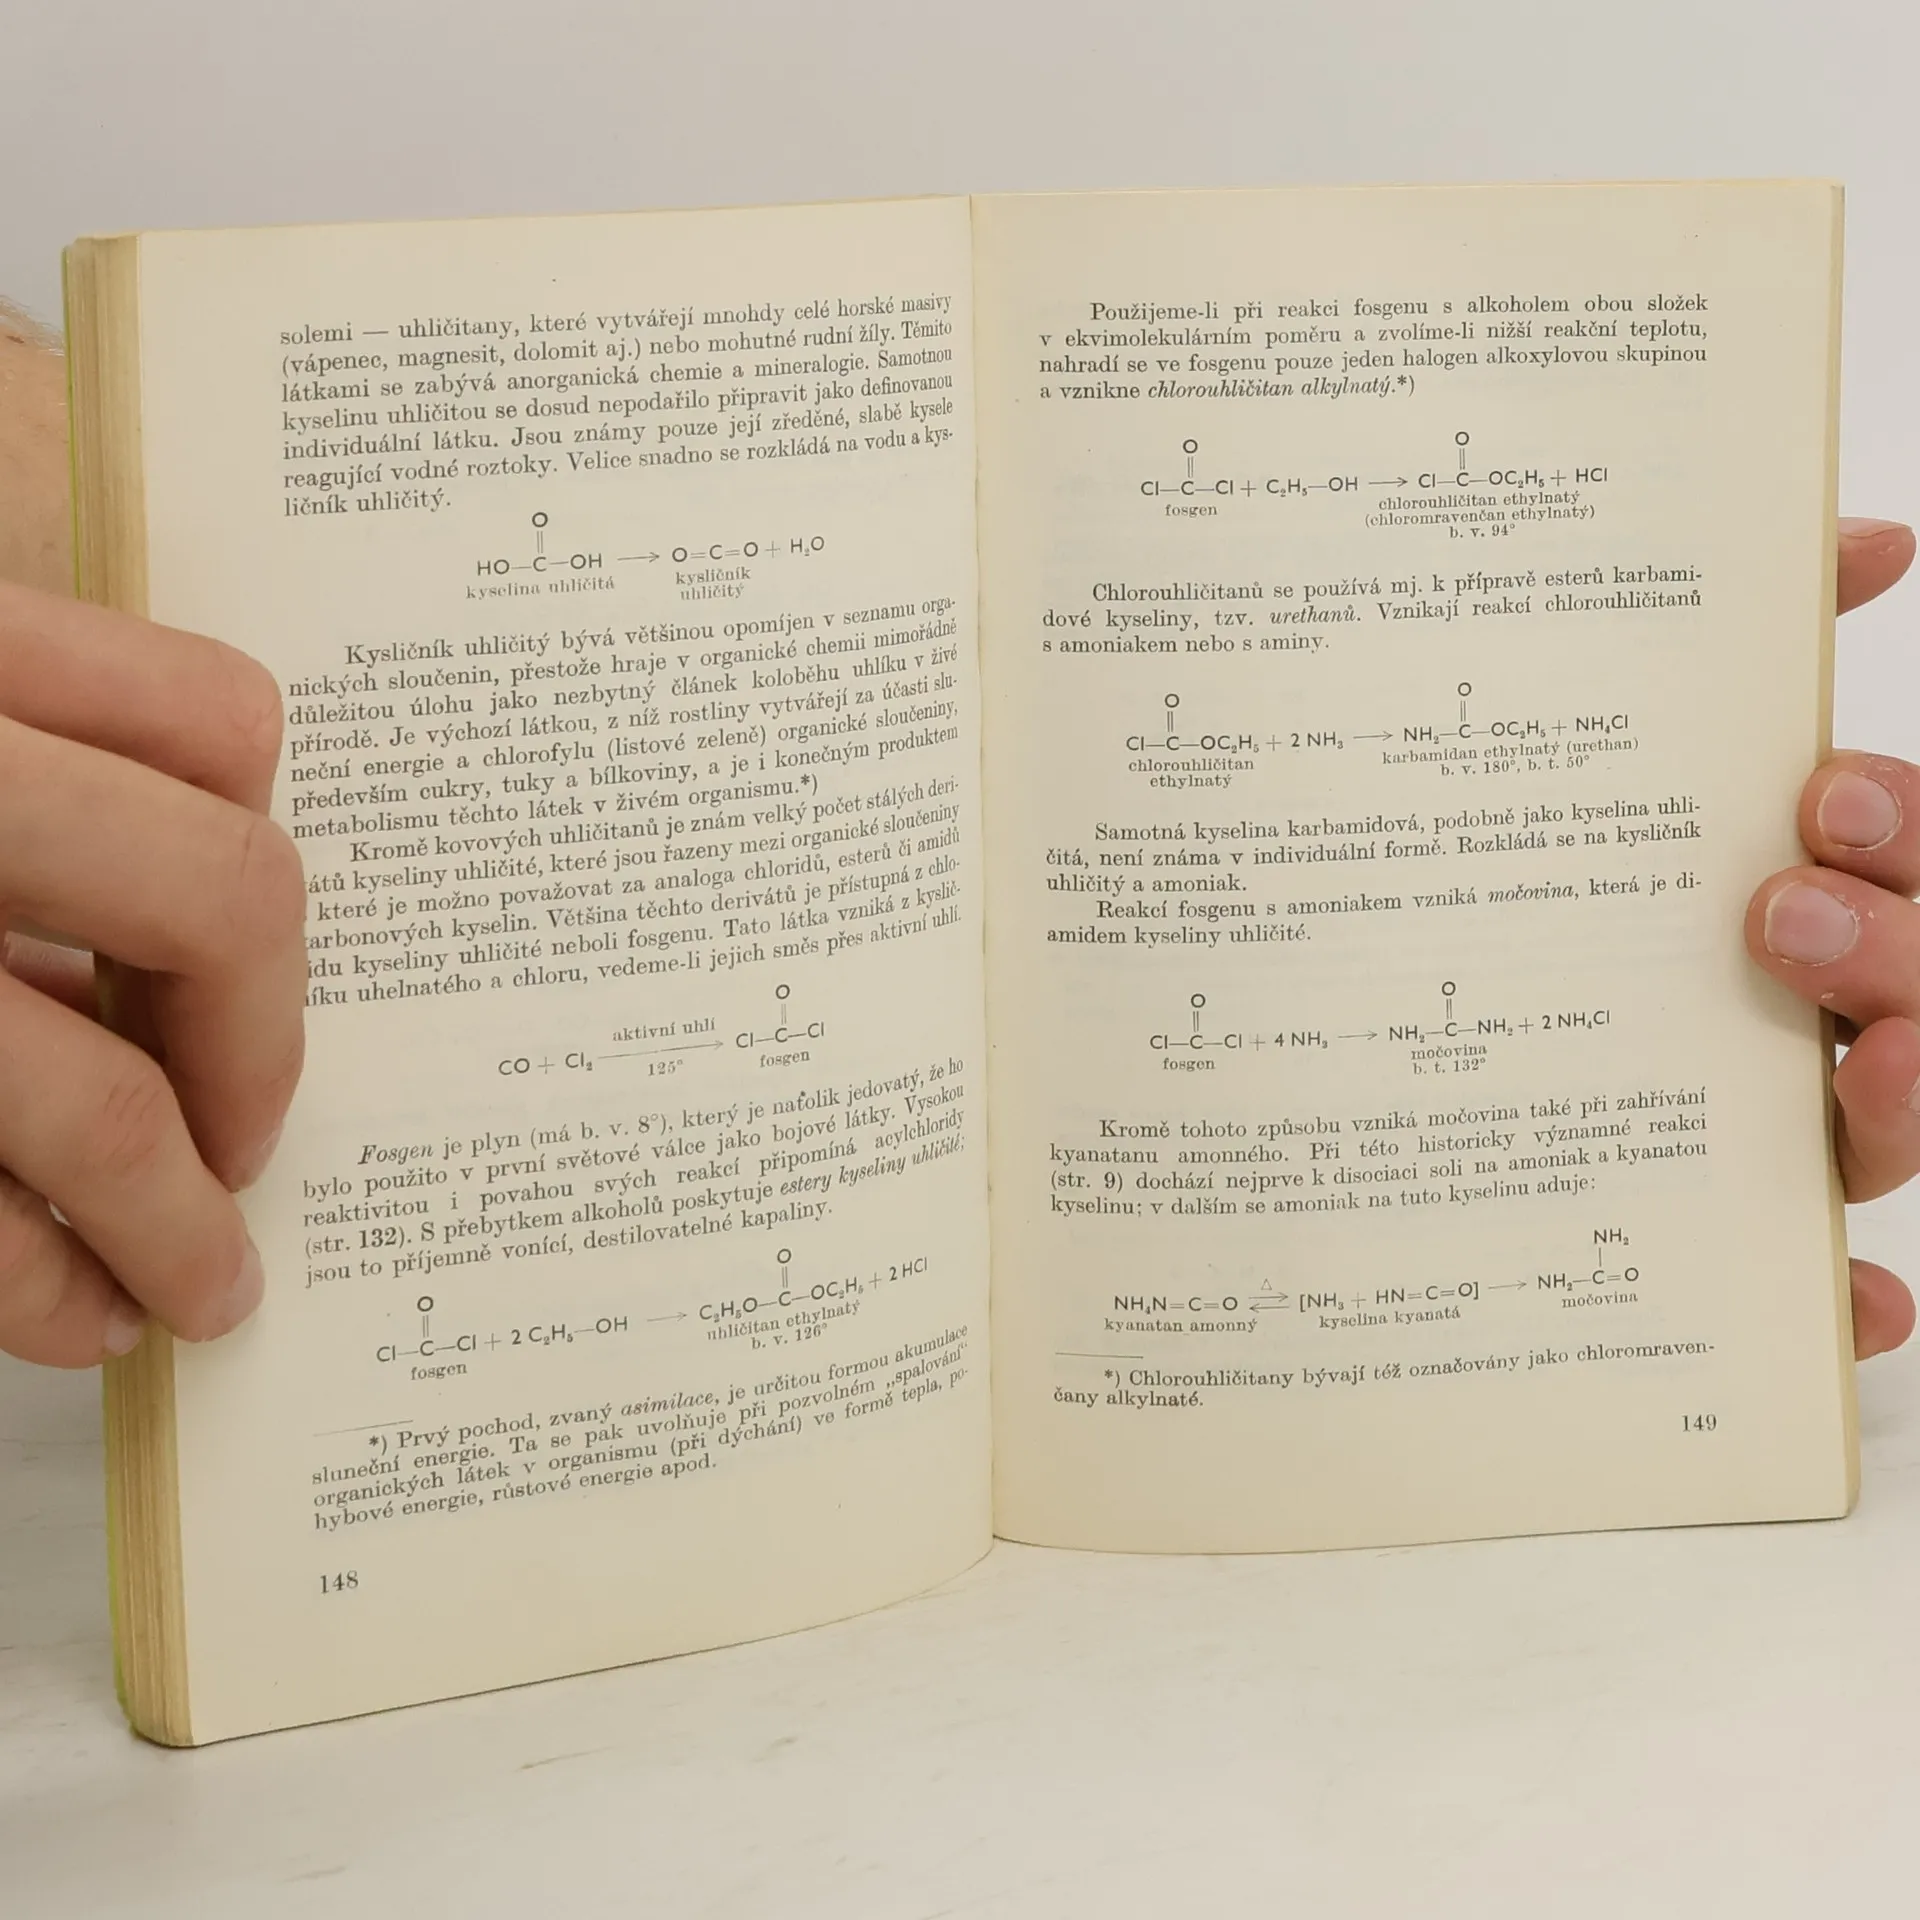 solemi — uhličitany, které vytvářejí mnohdy celé horské masivy
(vápenec, magnesit, dolomit aj.) nebo mohutné rudní žíly. Těmito
látkami se zabývá anorganická chemie a mineralogie. Samotnou
kyselinu uhličitou se dosud nepodařilo připravit jako definovanou
individuální látku. Jsou známy pouze její zředěné, slabě kysele
reagující vodné roztoky. Velice snadno se rozkládá na vodu a kys-
ličník uhličitý.
O
||
HO—C—OH ⟶ O=C=O + H₂O
kyselina uhličitá kysličník
uhličitý
Kysličník uhličitý bývá většinou opomíjen v seznamu orga-
nických sloučenin, přestože hraje v organické chemii mimořádně
důležitou úlohu jako nezbytný článek koloběhu uhlíku v živé
přírodě. Je výchozí látkou, z níž rostliny vytvářejí za účasti slu-
neční energie a chlorofylu (listové zeleně) organické sloučeniny,
především cukry, tuky a bílkoviny, a je i konečným produktem
metabolismu těchto látek v živém organismu.*)
Kromě kovových uhličitanů je znám velký počet stálých deri-
átů kyseliny uhličité, které jsou řazeny mezi organické sloučeniny
které je možno považovat za analoga chloridů, esterů či amidů
arbonových kyselin. Většina těchto derivátů je přístupná z chlo-
idu kyseliny uhličité neboli fosgenu. Tato látka vzniká z kyslič-
íku uhelnatého a chloru, vedeme-li jejich směs přes aktivní uhlí.
O
||
CO + Cl₂ aktivní uhlí ⟶ 125° Cl—C—Cl
fosgen
Fosgen je plyn (má b. v. 8°), který je natolik jedovatý, že ho
bylo použito v první světové válce jako bojové látky. Vysokou
reaktivitou i povahou svých reakcí připomíná acylchloridy
(str. 132). S přebytkem alkoholů poskytuje estery kyseliny uhličité;
jsou to příjemně vonící, destilovatelné kapaliny.
O O
|| ||
Cl—C—Cl + 2 C₂H₅—OH ⟶ C₂H₅O—C—OC₂H₅ + 2 HCl
fosgen uhličitan ethylnatý
b. v. 126°
*) Prvý pochod, zvaný asimilace, je určitou formou akumulace
sluneční energie. Ta se pak uvolňuje při pozvolném „spalování“
organických látek v organismu (při dýchání) ve formě tepla, po-
hybové energie, růstové energie apod.
148
Použijeme-li při reakci fosgenu s alkoholem obou složek
v ekvimolekulárním poměru a zvolíme-li nižší reakční teplotu,
nahradí se ve fosgenu pouze jeden halogen alkoxylovou skupinou
a vznikne chlorouhličitan alkylnatý.*)
O O
|| ||
Cl—C—Cl + C₂H₅—OH ⟶ Cl—C—OC₂H₅ + HCl
fosgen chlorouhličitan ethylnatý
(chloromravenčan ethylnatý)
b. v. 94°
Chlorouhličitanů se používá mj. k přípravě esterů karbami-
dové kyseliny, tzv. urethanů. Vznikají reakcí chlorouhličitanů
s amoniakem nebo s aminy.
O O
|| ||
Cl—C—OC₂H₅ + 2 NH₃ ⟶ NH₂—C—OC₂H₅ + NH₄Cl
chlorouhličitan karbamidan ethylnatý (urethan)
ethylnatý b. v. 180°, b. t. 50°
Samotná kyselina karbamidová, podobně jako kyselina uhli-
čitá, není známa v individuální formě. Rozkládá se na kysličník
uhličitý a amoniak.
Reakcí fosgenu s amoniakem vzniká močovina, která je di-
amidem kyseliny uhličité.
O O
|| ||
Cl—C—Cl + 4 NH₃ ⟶ NH₂—C—NH₂ + 2 NH₄Cl
fosgen močovina
b. t. 132°
Kromě tohoto způsobu vzniká močovina také při zahřívání
kyanatanu amonného. Při této historicky významné reakci
(str. 9) dochází nejprve k disociaci soli na amoniak a kyanatou
kyselinu; v dalším se amoniak na tuto kyselinu aduje:
NH₂
|
NH₄N=C=O Δ ⇄ [NH₃ + HN=C=O] ⟶ NH₂—C=O
kyanatan amonný kyselina kyanatá močovina
*) Chlorouhličitany bývají též označovány jako chloromraven-
čany alkylnaté.
149